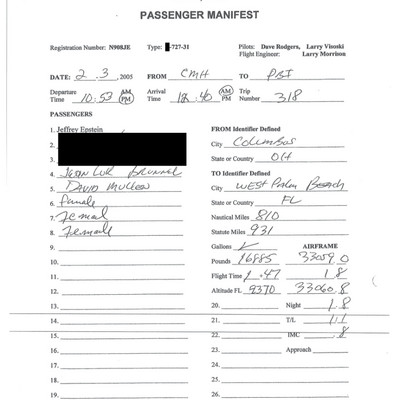 PASSENGER MANIFEST
Registration Number: N908JE Type: -727-31 Pilots: Dave Rodgers, Larry Visoski
Flight Engineer: Larry Morrison
DATE: 2 . 3 , 2005 FROM CMH TO PBI
Departure Time 10:53 AM PM Arrival Time 12:40 AM PM Trip Number 318
PASSENGERS
1. Jeffrey Epstein
2.
3.
4. Jean Luc Brunnel
5. David Mullen
6. female
7. Female
8. Female
9.
10.
11.
12.
13.
14.
15.
16.
17.
18.
19.
FROM Identifier Defined
City Columbus
State or Country OH
TO Identifier Defined
City West Palm Beach
State or Country FL
Nautical Miles 810
Statute Miles 931
Gallons AIRFRAME
Pounds 16885 33059.0
Flight Time 1.47 1.8
Altitude FL 9370 33060.8
20. Night 1.8
21. T/L 1/1
22. IMC .8
23. Approach
24.
25.
26.